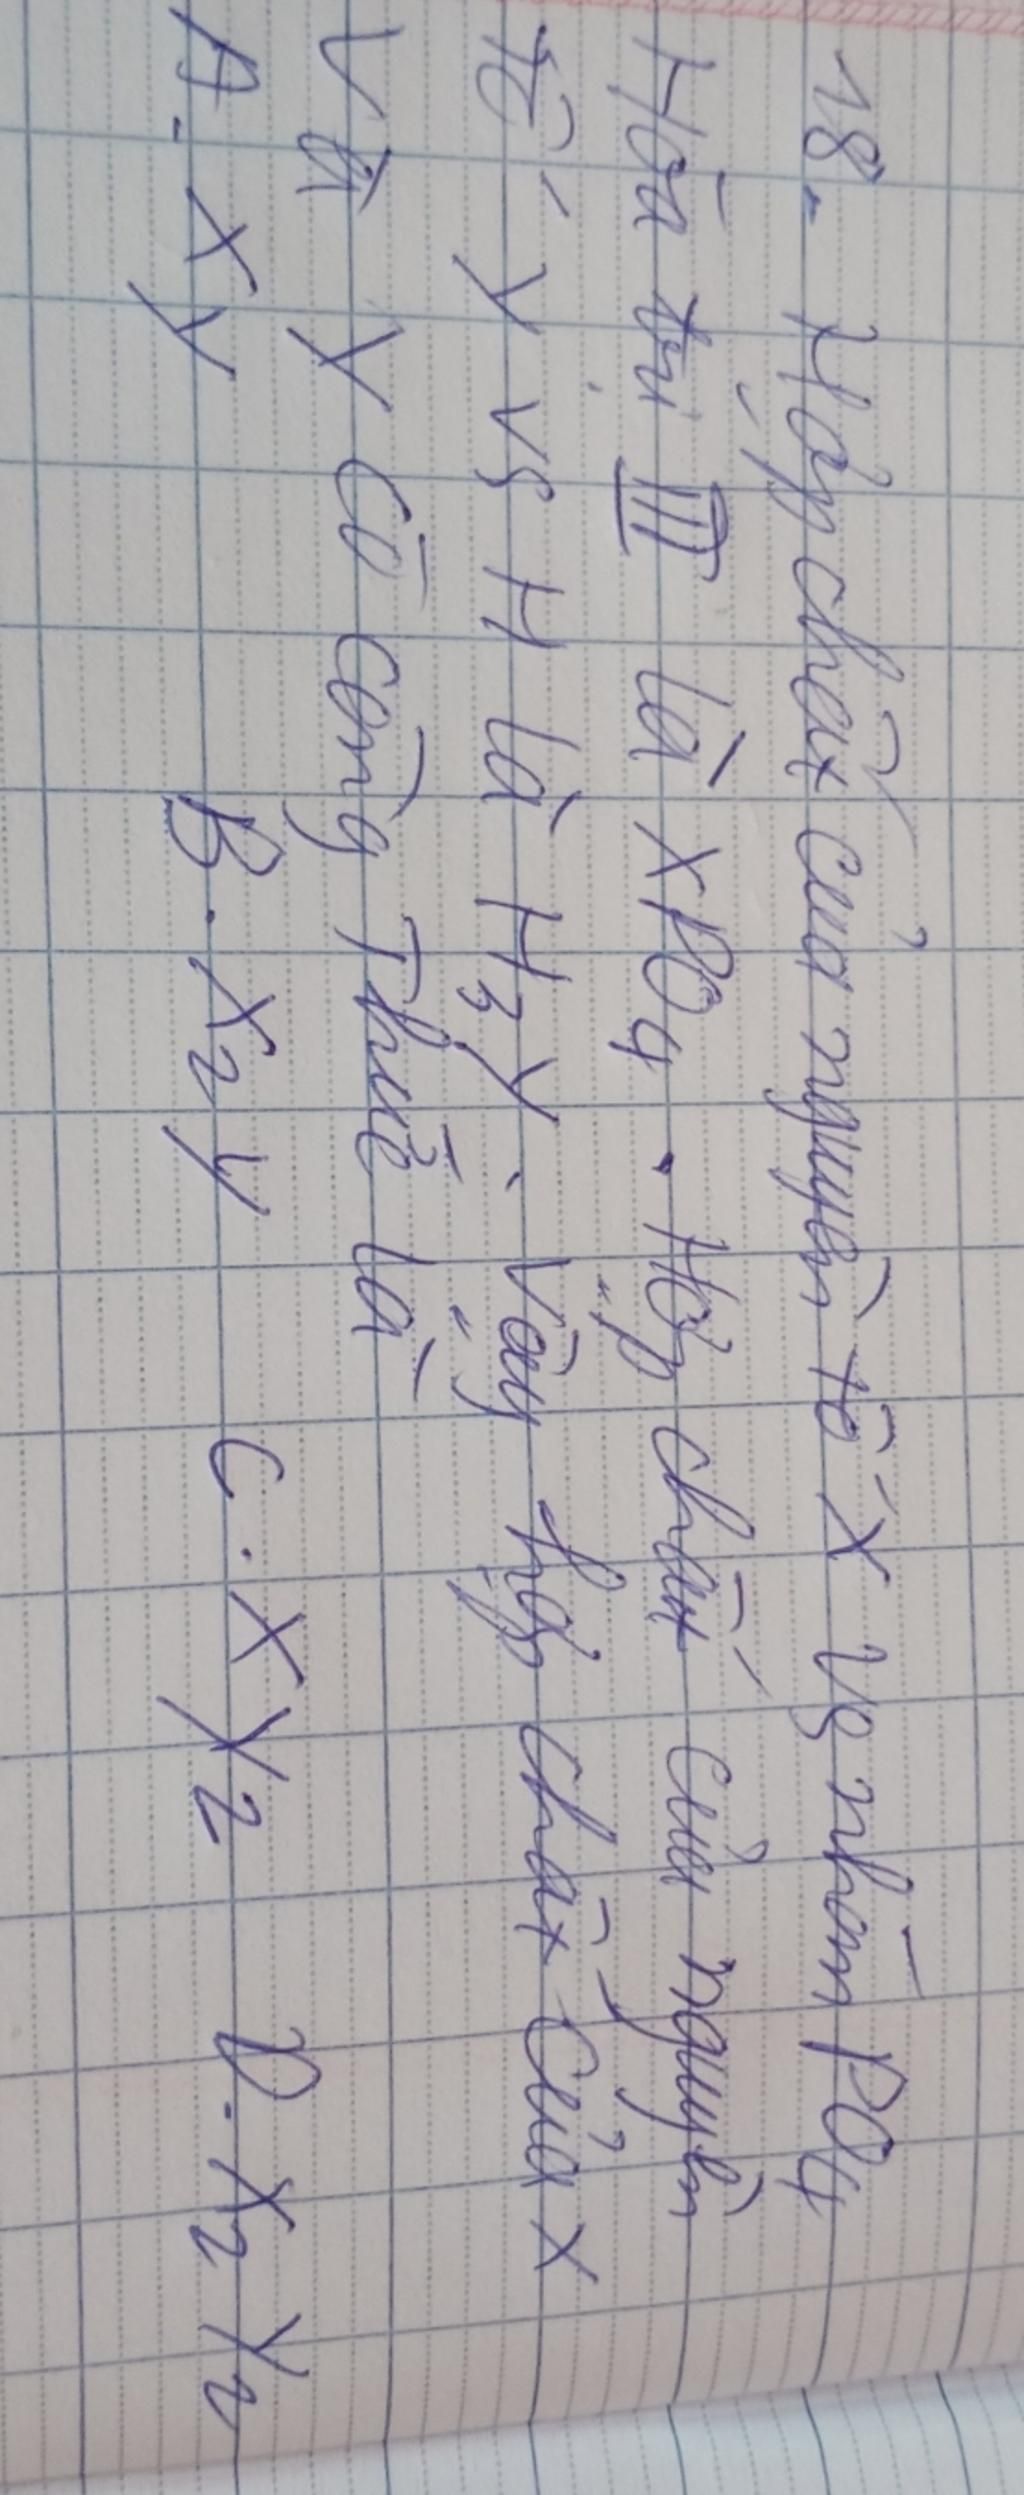 18. Hợp chất của nguyên tố X vs nhóm PO4
Hóa trị III là XPO4. Hợp chất của nguyên
tố Y vs H là H3Y. Vậy hợp chất của X
Và Y có công Thức là
A. XY B. X2Y C. XY2 D. X2Y2